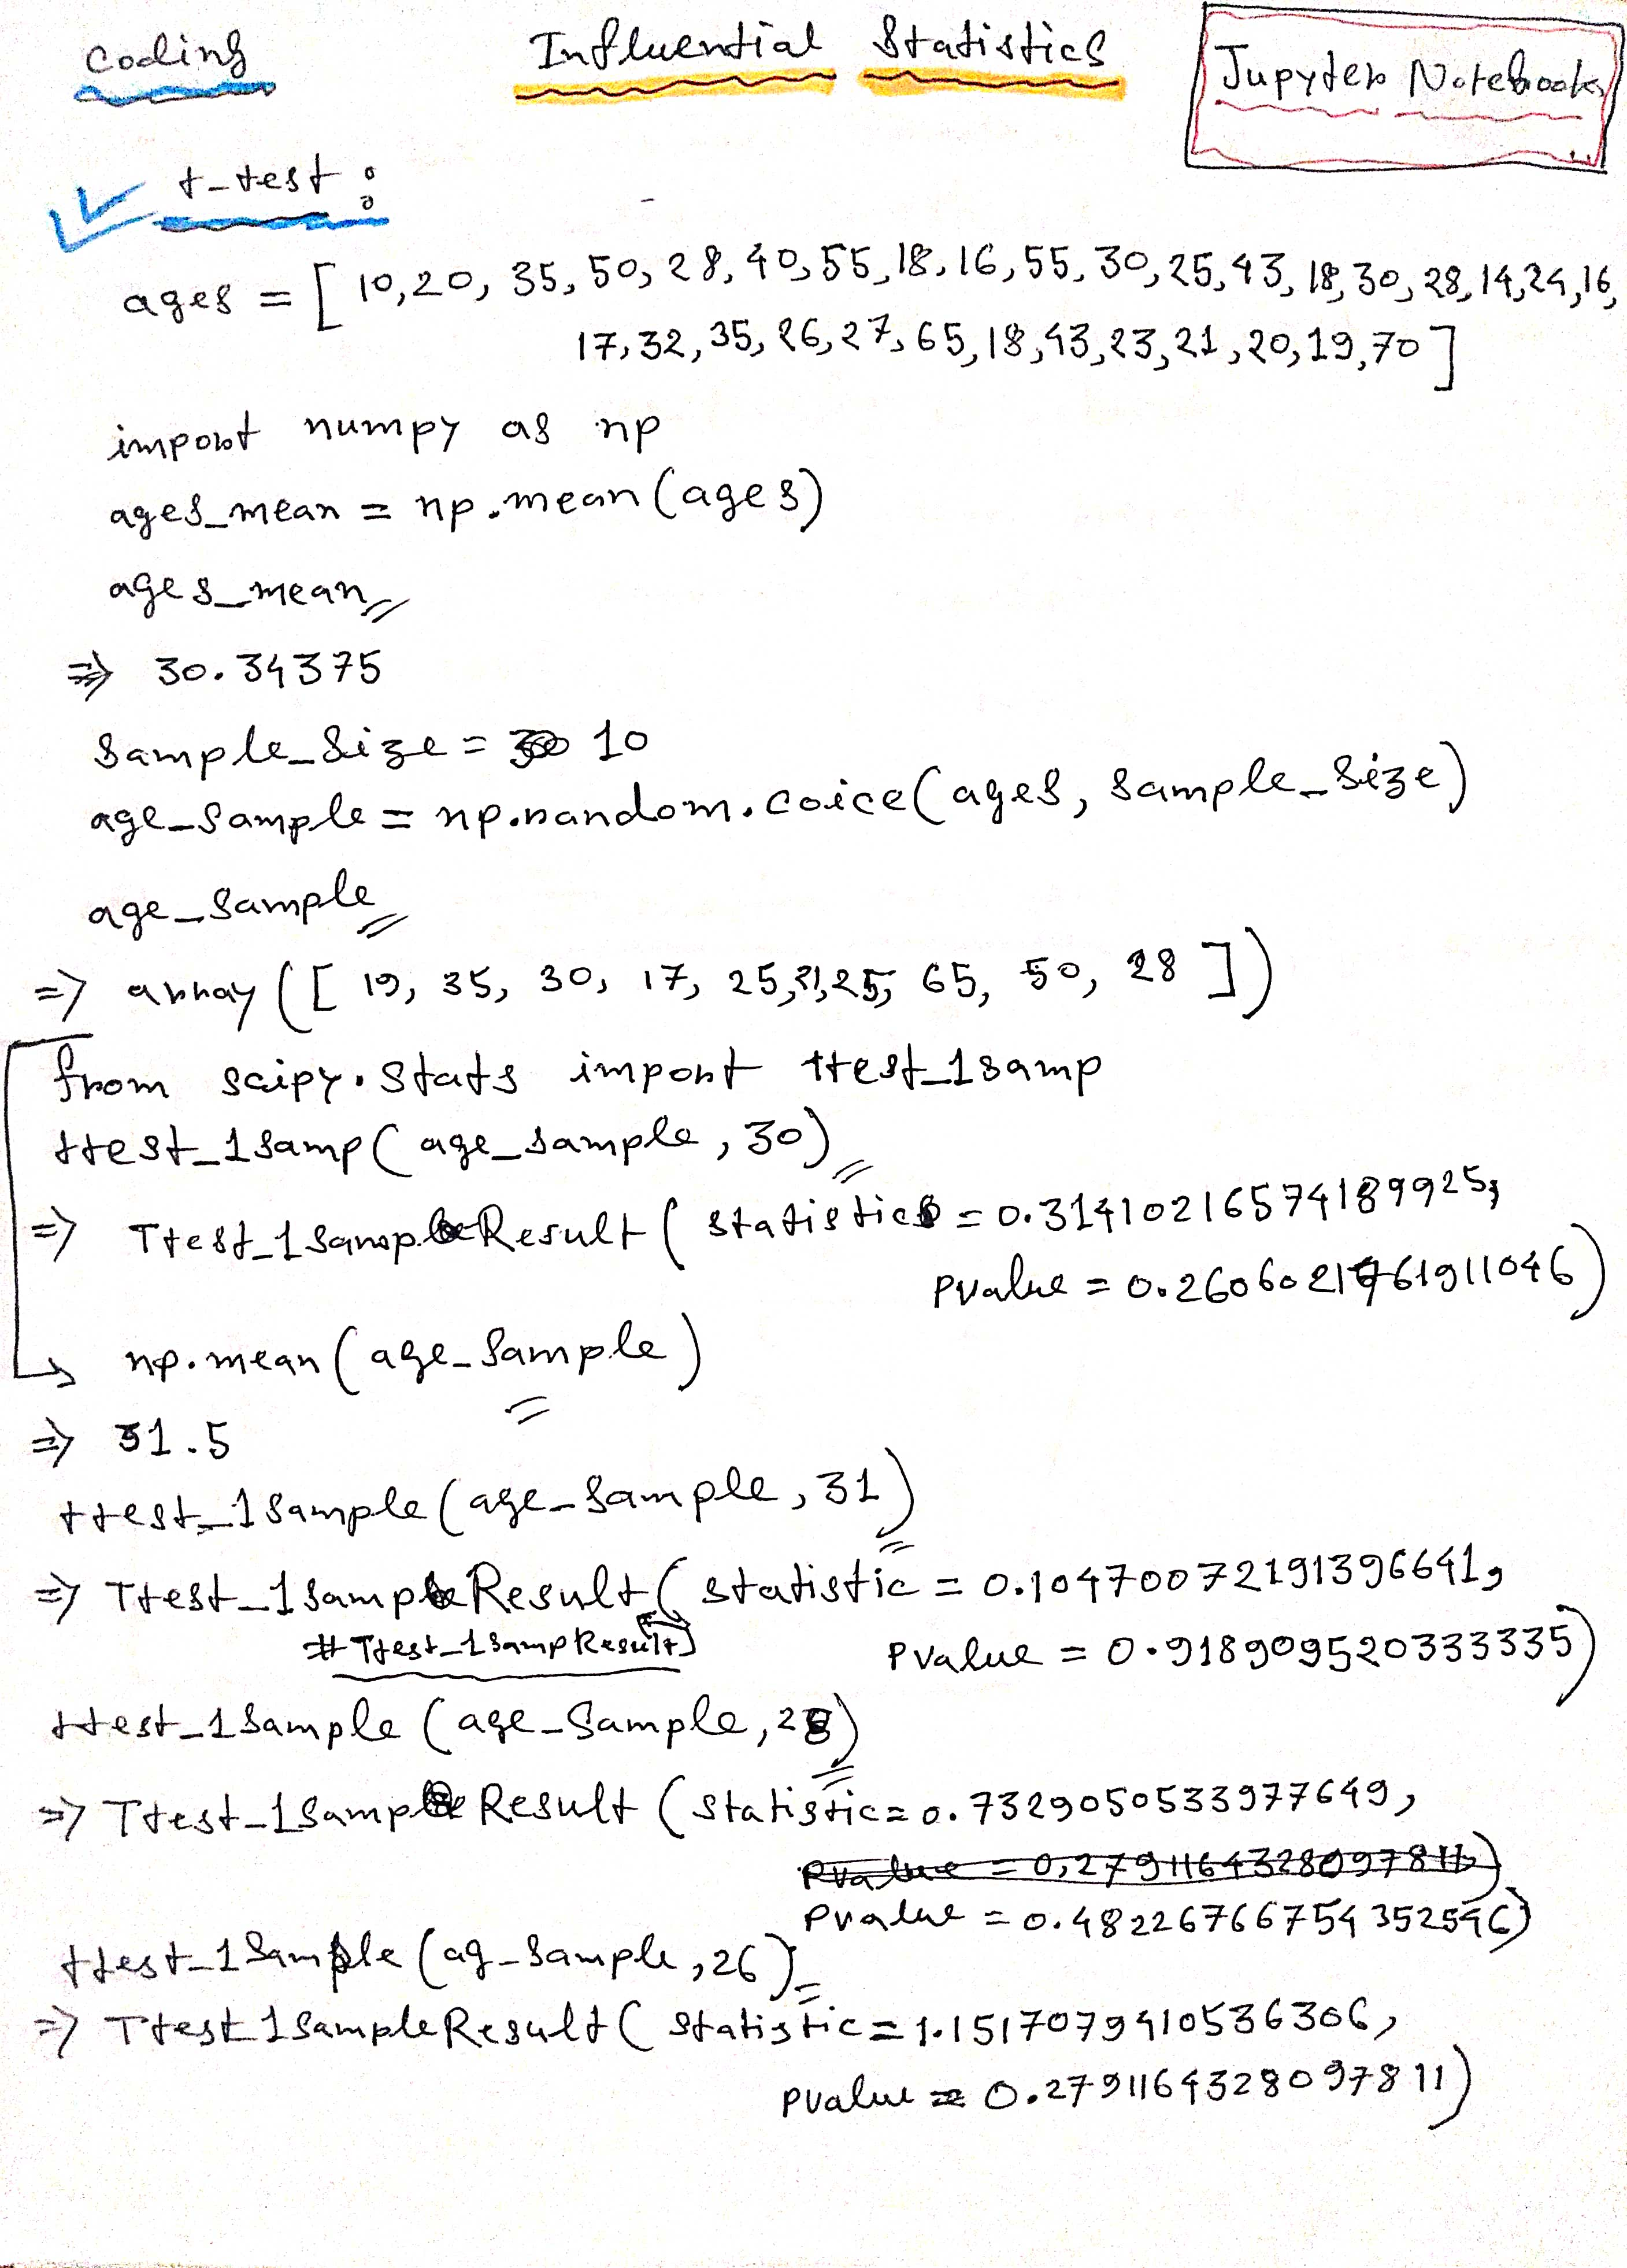 Coding
Influential Statistics
Jupyter Notebook
t-test :
ages = [ 10,20, 35, 50, 28, 40, 55, 18, 16, 55, 30, 25, 43, 18, 30, 28, 14, 24, 16,
17, 32, 35, 26, 27, 65, 18, 43, 23, 21, 20, 19, 70 ]
import numpy as np
ages_mean = np.mean(ages)
ages_mean
=> 30.34375
Sample_Size = 10
age_Sample = np.random.coice(ages, sample_size)
age_Sample
=> array ([ 19, 35, 30, 17, 25, 21, 25, 65, 50, 28 ])
from scipy.stats import ttest_1samp
ttest_1samp( age_sample, 30)
=> Ttest_1SampResult ( statistic = 0.31410216574189925,
Pvalue = 0.2606021761911046)
np.mean (age_Sample)
=> 31.5
ttest_1Sample (age_Sample, 31)
=> Ttest_1SampResult ( statistic = 0.10470072191396641,
# Ttest_1SampResult)
Pvalue = 0.918909520333335)
ttest_1Sample (age_Sample, 28)
=> Ttest_1SampResult (Statistic = 0.7329050533977649,
Pvalue = 0.27911643280997811)
Pvalue = 0.48226766754352546)
ttest_1Sample (ag_Sample, 26)
=> Ttest_1SampleResult ( Statistic = 1.1517079410536306,
Pvalue = 0.2791164328097811)